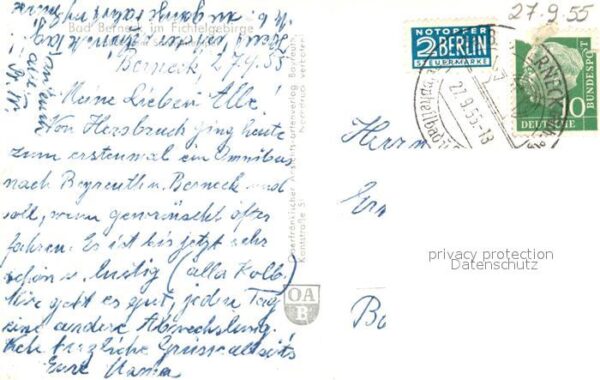 27.9.55
Bad Berneck im Fichtelgebirge
Berneck 27.9.55
Meine Lieben Alle!
Von Hersbruck ging heute
zum erstenmal ein Omnibus
nach Beyreuth u. Berneck und
soll, wenn gewünscht öfter
fahren. Es ist bis jetzt sehr
schön u. lustig (alla Kolb.
Mir geht es gut, jeden Tag
eine andere Abwechslung.
herzliche Grüsse allseits
Eure Mama
Oberfränkischer Ansichtskartenverlag Bayreuth
Kantstraße 5
Nachdruck verboten
OA
B
NOTOPFER
2 BERLIN
STEUERMARKE
27.9.55-13
10
DEUTSCHE
BUNDESPOST
Herrn
privacy protection
Datenschutz